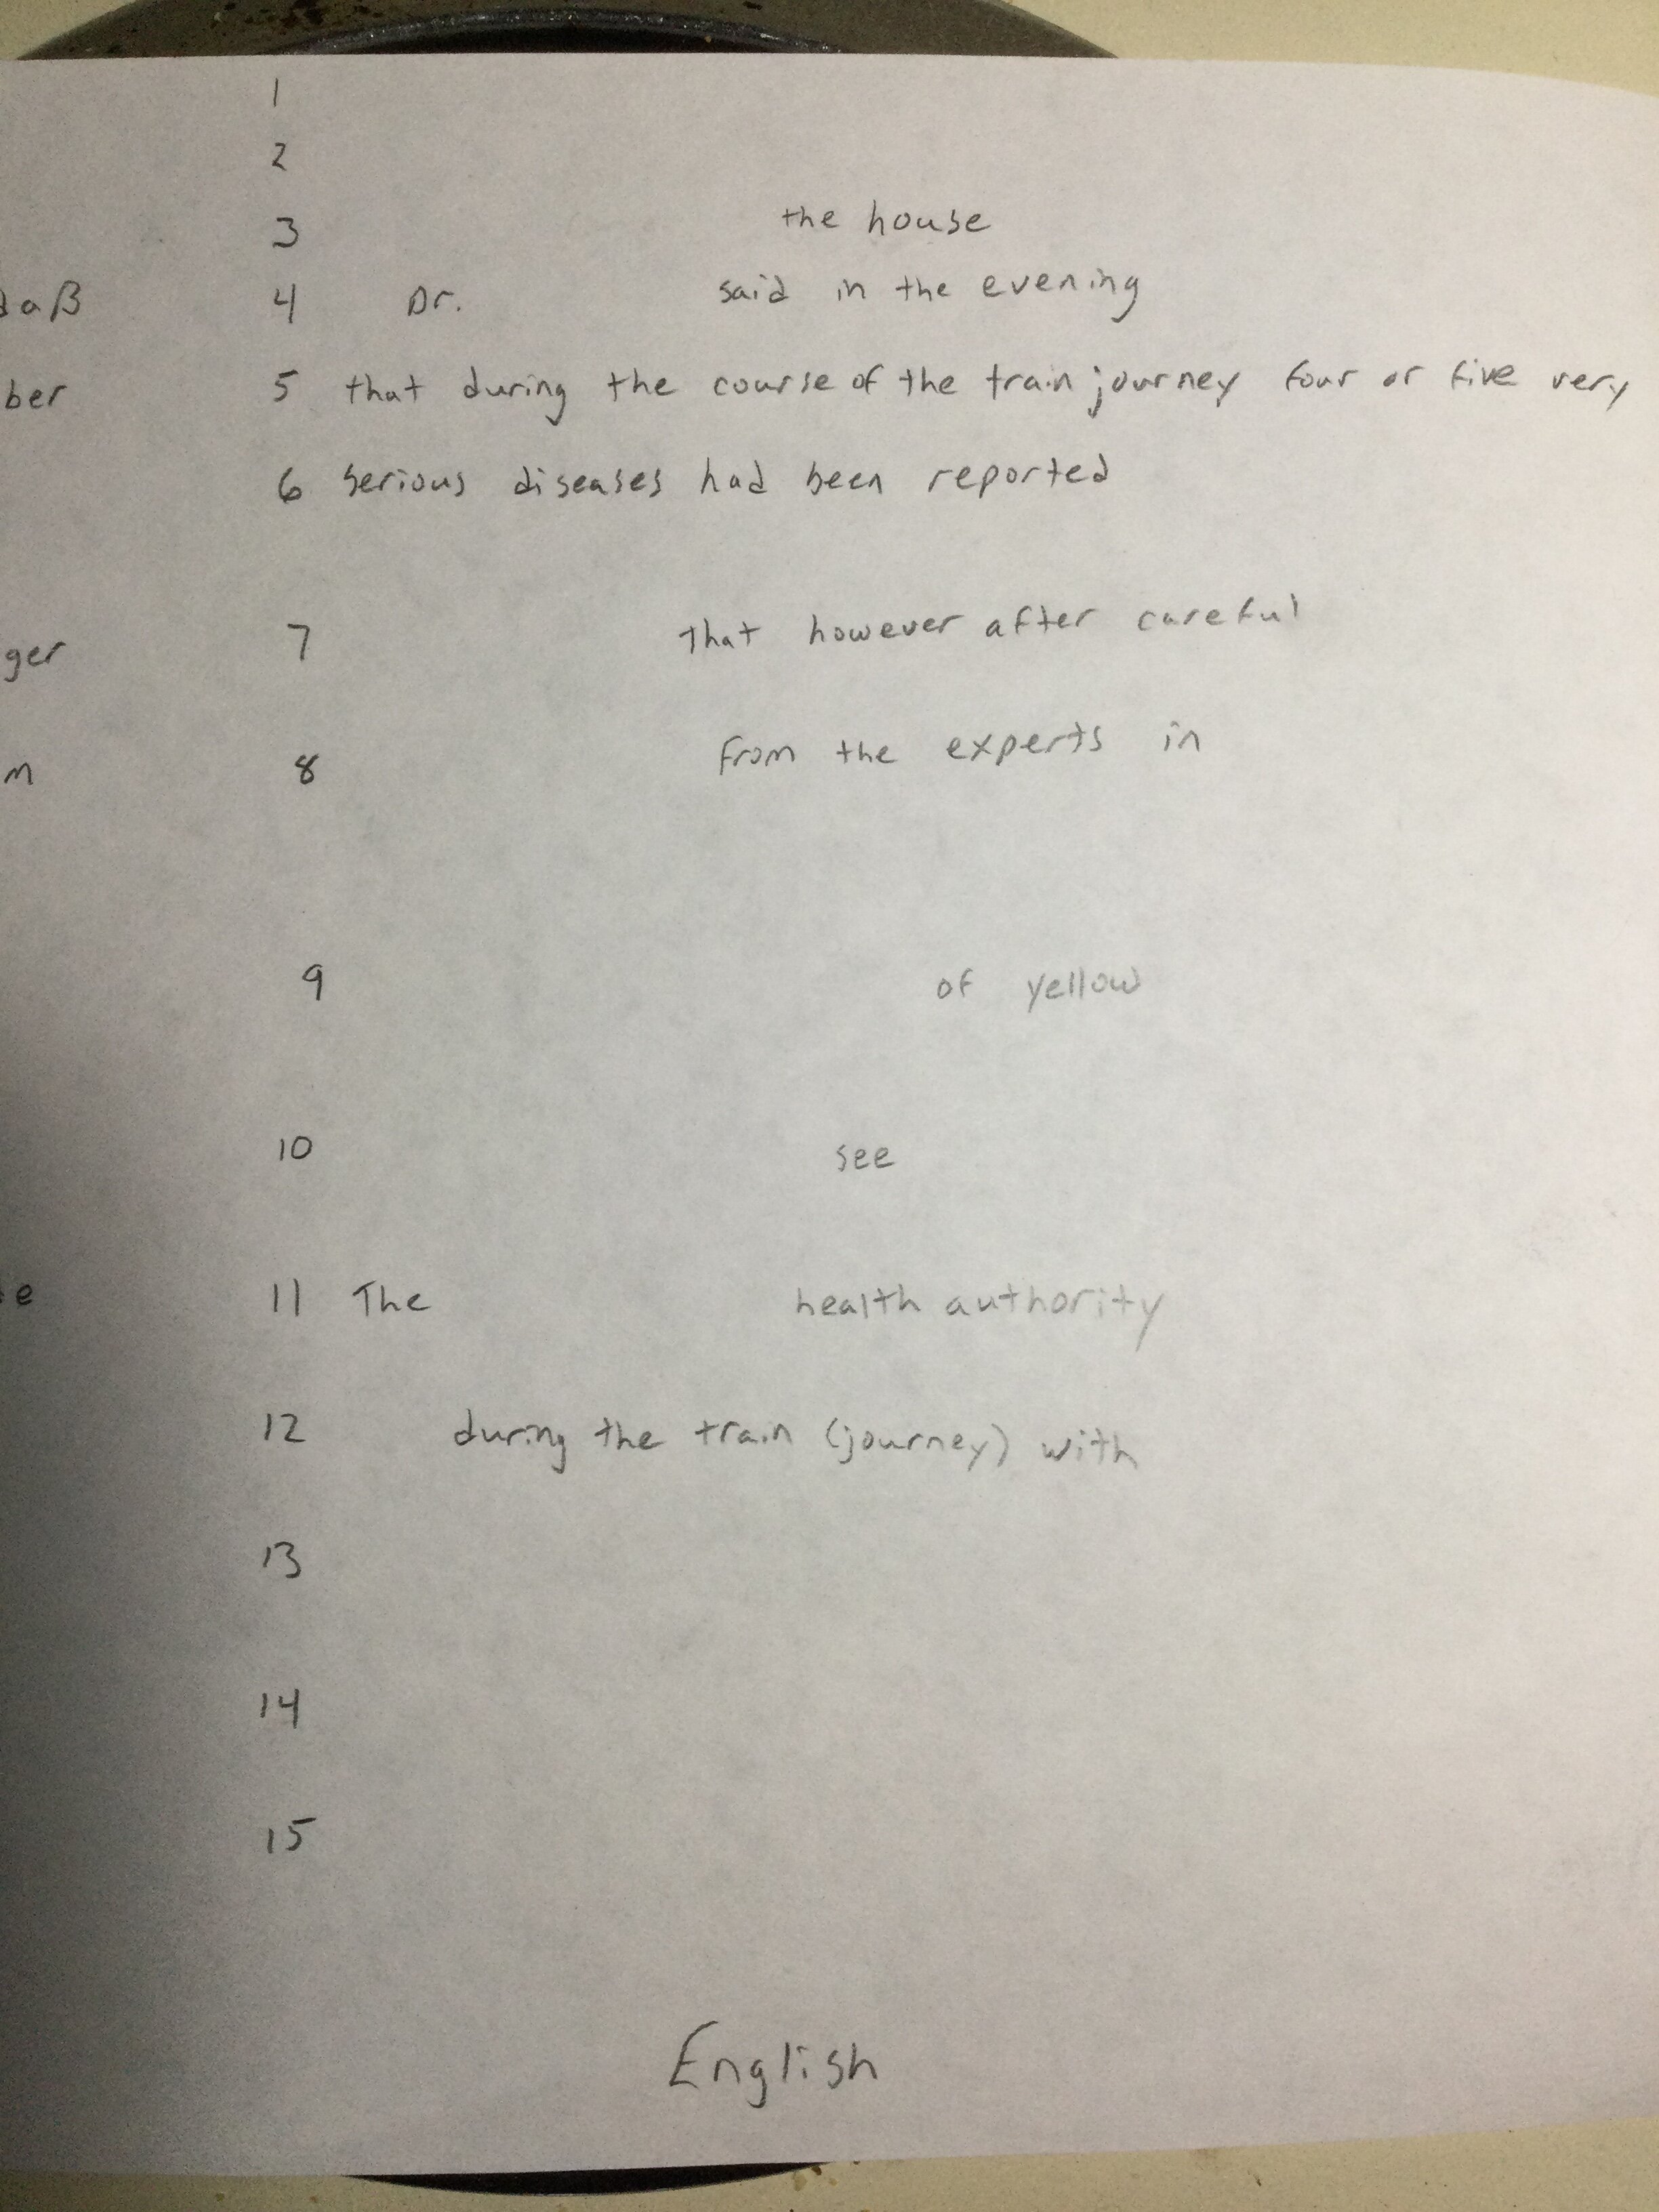 1
2
3 the house
daß 4 Dr. said in the evening
ber 5 that during the course of the train journey four or five very
6 serious diseases had been reported
ger 7 that however after careful
m 8 from the experts in
9 of yellow
10 see
e 11 The health authority
12 during the train (journey) with
13
14
15
English